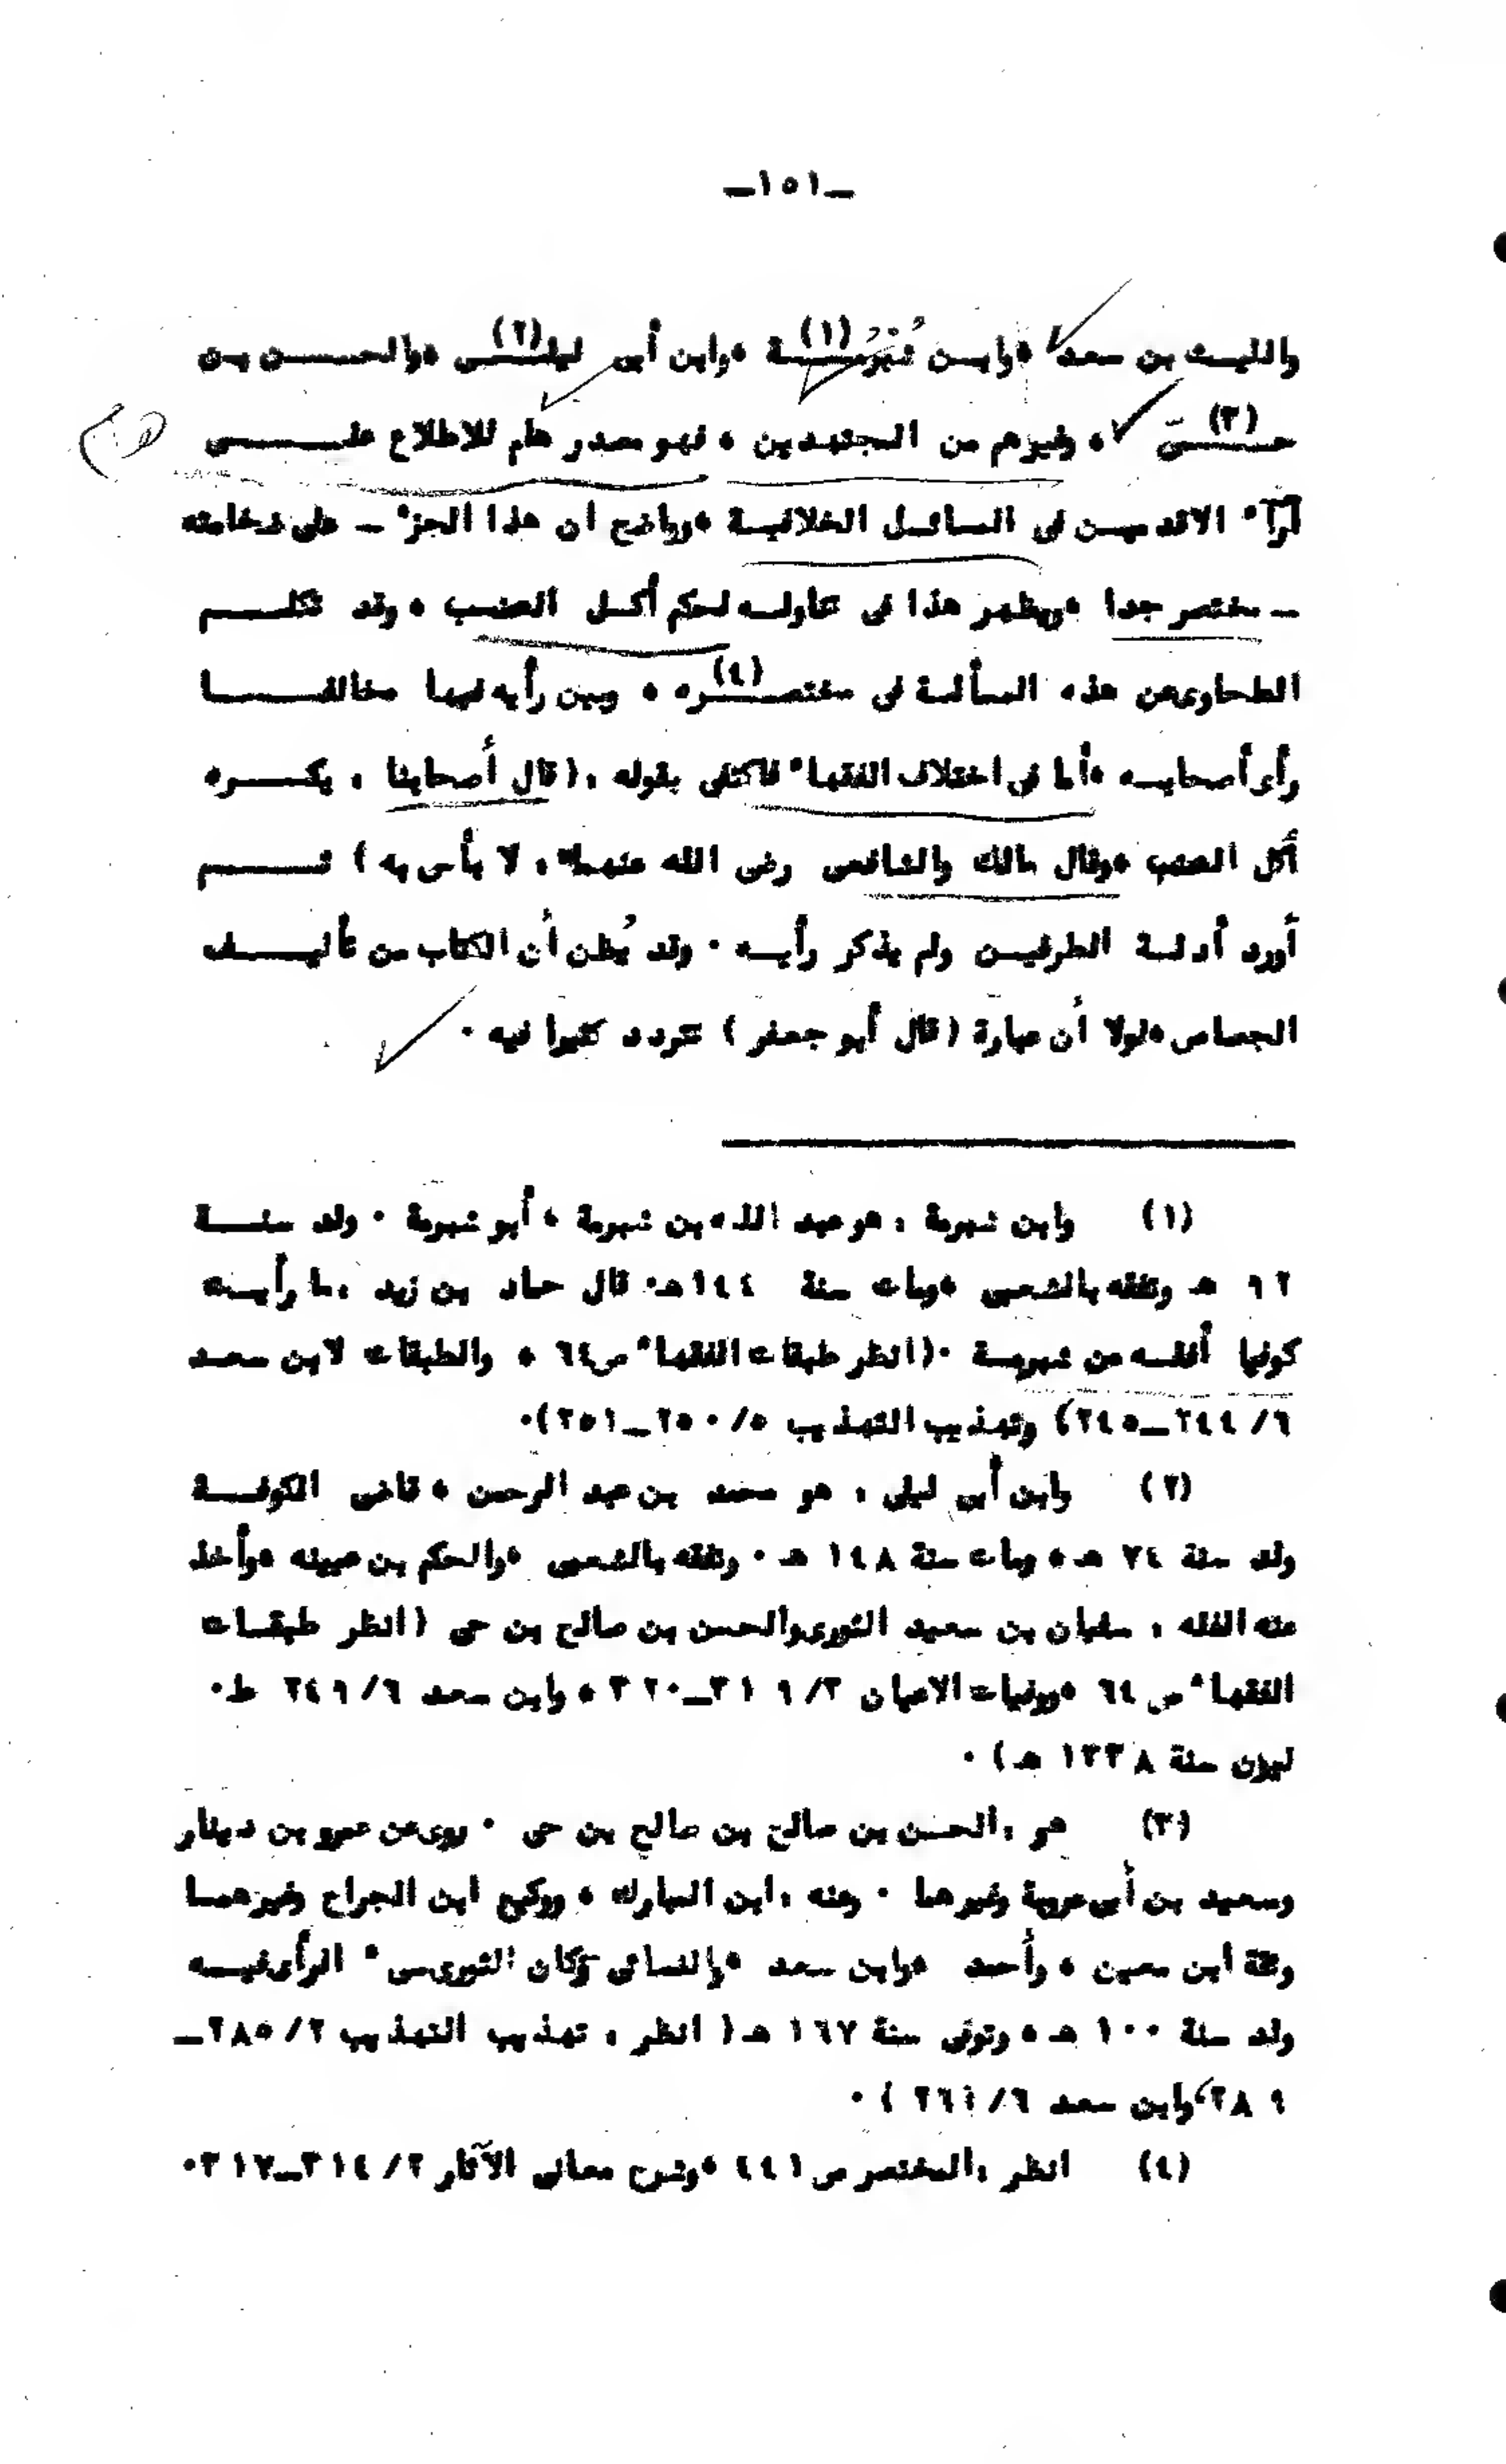 ـ١٥١ـ
والليث بن سعد ، وابن شُبْرُمة (١) ، وابن أبى ليلى (٢) ، والحسن بن
حىّ (٣) ، وغيرهم من المجتهدين ، فهو مصدر هام للاطلاع على
آراء الاقدمين فى المسائل الخلافية ، وواضح أن هذا الجزء ـ على ضخامته
ـ مختصر جدا ، ويظهر هذا فى تناوله لحكم أكل الضب ، وقد تكلم
الطحاوى عن هذه المسألة فى مختصره (٤) ، وبين رأيه فيها مخالفا
رأى أصحابه ، أما فى اختلاف الفقهاء فاكتفى بقوله : ( قال أصحابنا : يكره
أكل الضب ، وقال مالك والشافعى رضى الله عنهما : لا بأس به ) ثم
أورد أدلة الطرفين ولم يذكر رأيه . وقد يُظن أن الكتاب من تأليف
الجصاص ، لولا أن عبارة ( قال أبو جعفر ) تتردد كثيرا فيه .
(١) وابن شبرمة : هو عبد الله بن شبرمة ، أبو شبرمة . ولد سنة
٩٢ هـ وتفقه بالشعبى ، ومات سنة ١٤٤ هـ . قال حماد بن زيد : ما رأيت
كوفيا أفقه من شبرمة . ( انظر طبقات الفقهاء ص ٦٤ ، والطبقات لابن سعد
٦/ ٢٤٤ـ٢٤٥) وتهذيب التهذيب ٥/ ٢٥٠ـ٢٥١) .
(٢) وابن أبى ليلى : هو محمد بن عبد الرحمن ، قاضى الكوفة
ولد سنة ٧٤ هـ ، ومات سنة ١٤٨ هـ . وتفقه بالشعبى ، والحكم بن عيينه ، وأخذ
عنه الفقه : سفيان بن سعيد الثورى والحسن بن صالح بن حى ( انظر طبقات
الفقهاء ص ٦٤ ، ووفيات الاعيان ٣/ ٣١٩ـ٣٢٠ ، وابن سعد ٦/ ٢٤٩ ط .
ليدن سنة ١٣٣٨ هـ ) .
(٣) هو : الحسن بن صالح بن صالح بن حى . روى عن عمرو بن دينار
وسعيد بن أبى عروبة وغيرهما . وعنه : ابن المبارك ، ووكيع ابن الجراح وغيرهما
وثقة ابن معين ، وأحمد ، وابن سعد ، والنسائى وكان الثورى سىء الرأى فيه
ولد سنة ١٠٠ هـ ، وتوفى سنة ١٦٧ هـ ( انظر : تهذيب التهذيب ٢/ ٢٨٥ـ
٢٨٩ ، وابن سعد ٦/ ٢٦١ ) .
(٤) انظر : المختصر ص ٤٤١ ، وشرح معانى الآثار ٢/ ٣١٤ـ٣١٧ .